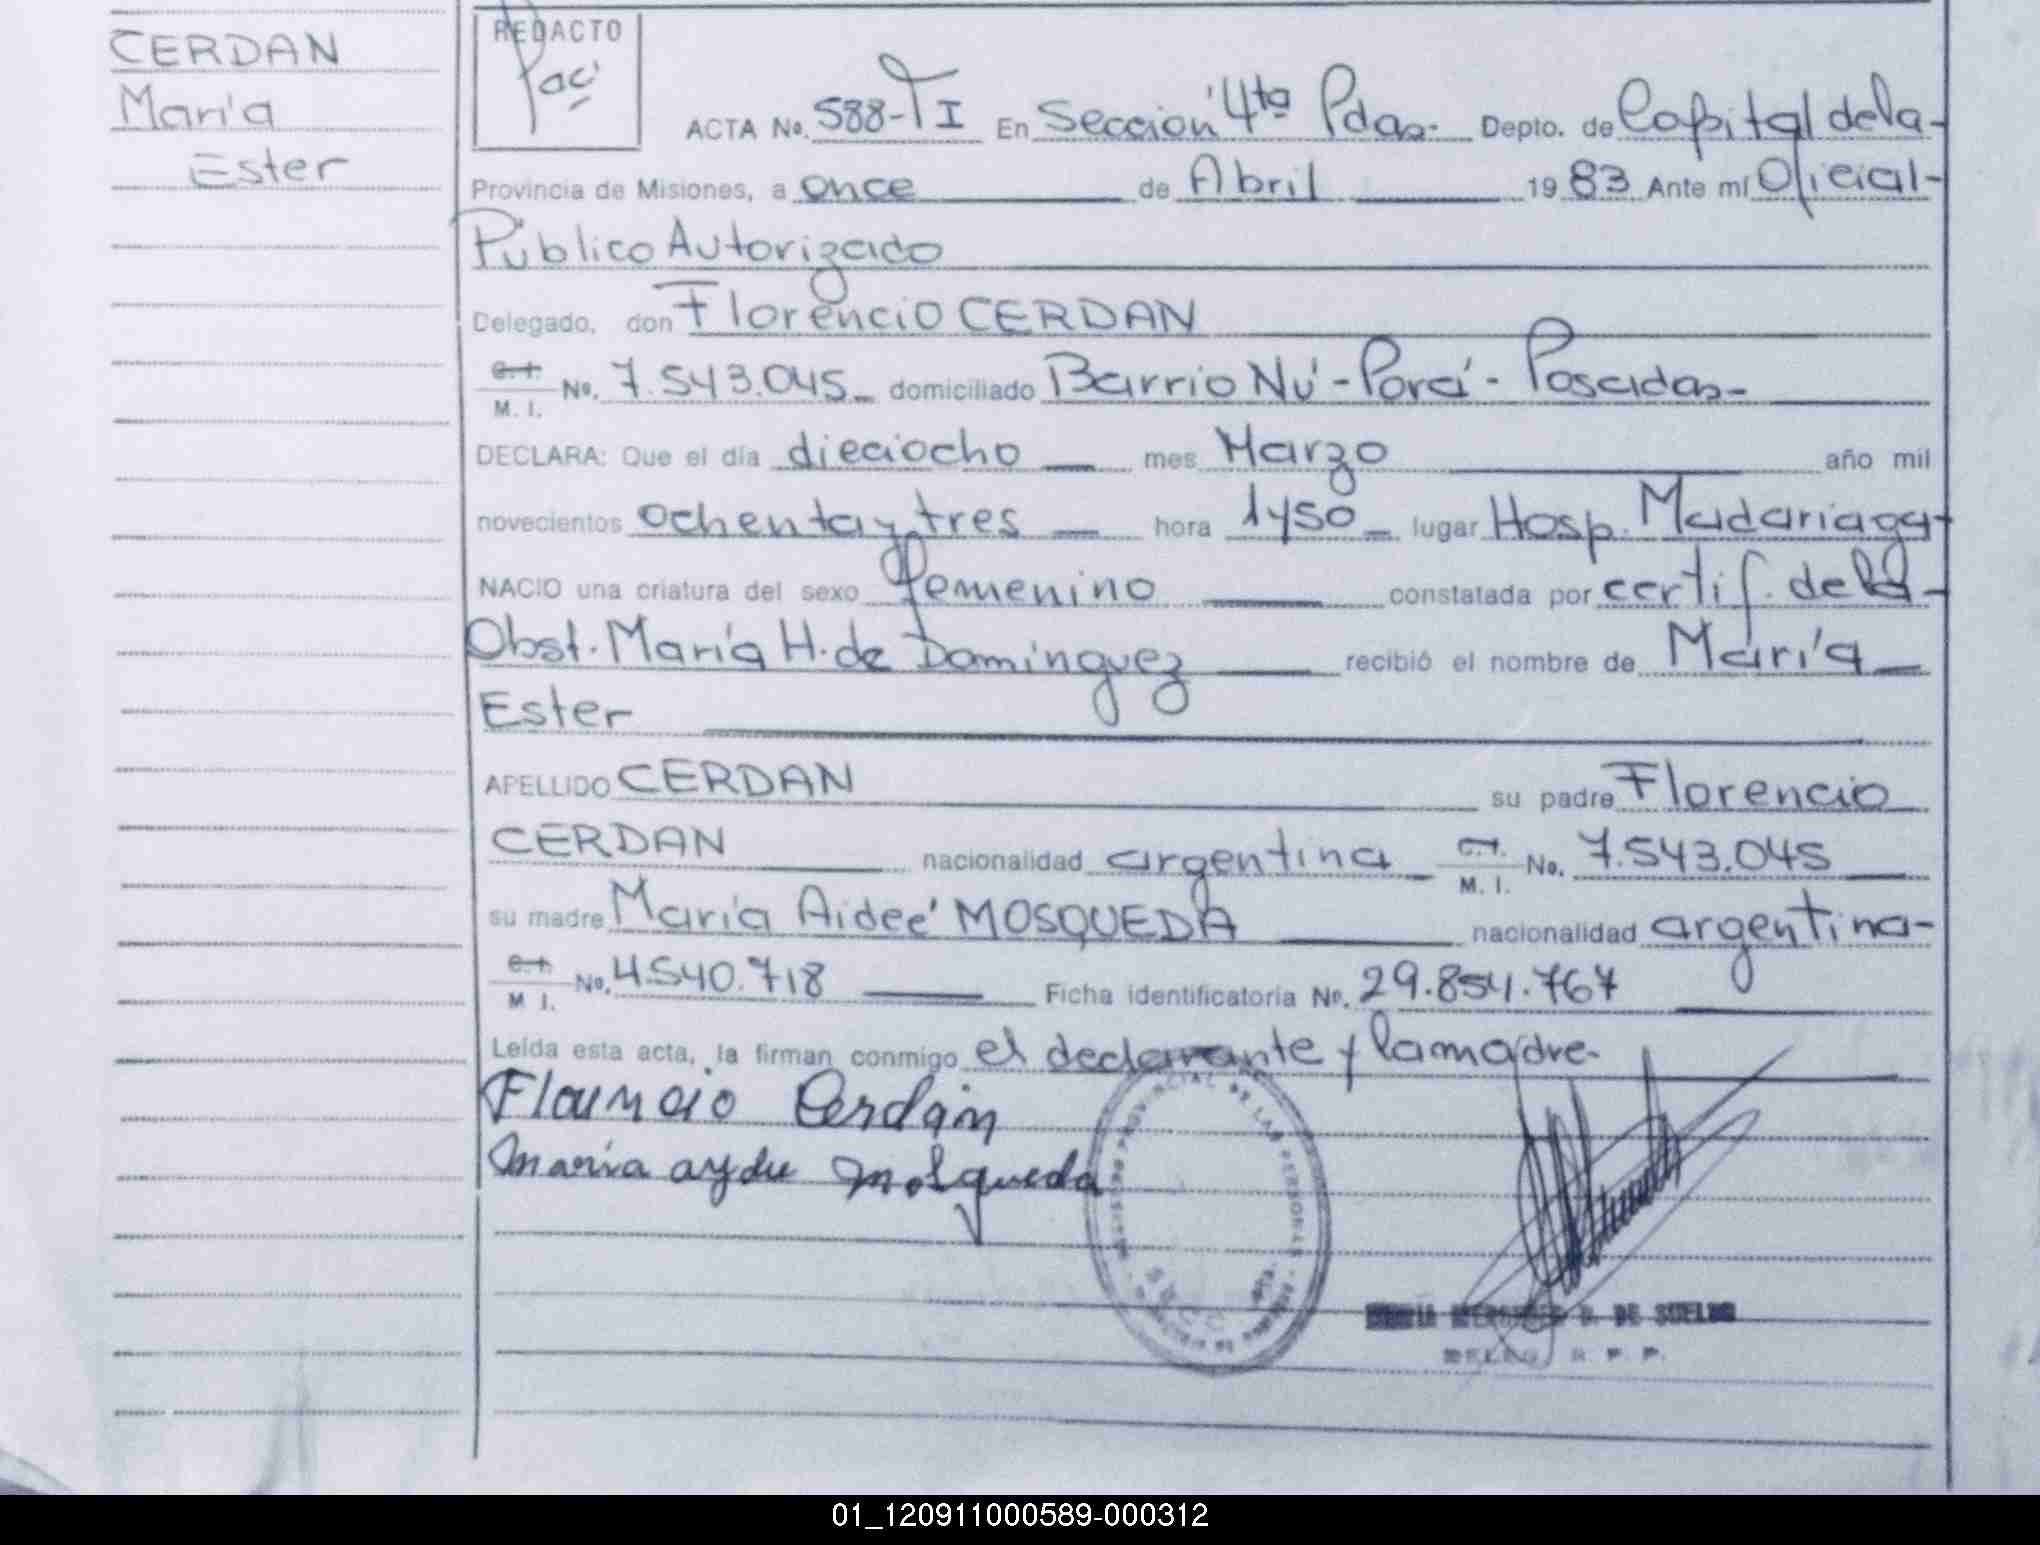 CERDAN
María
Ester
REDACTO
ACTA No. 588-TI En Sección 4ta Pdas.- Depto. de Capital de la-
Provincia de Misiones, a once de Abril 1983 Ante mí Oficial-
Público Autorizado
Delegado, don Florencio CERDAN
C.I. M. I. No. 7.543.045 domiciliado Barrio Ñú-Porá- Posadas-
DECLARA: Que el día dieciocho mes Marzo año mil
novecientos ochenta y tres hora 1450 lugar Hosp. Madariaga-
NACIO una criatura del sexo femenino constatada por certif. de la-
Obst. María H. de Domínguez recibió el nombre de María
Ester
APELLIDO CERDAN su padre Florencio
CERDAN nacionalidad argentina C.I. M. I. No. 7.543.045
su madre María Aideé MOSQUEDA nacionalidad argentina-
C.I. M I. No. 4.540.718 Ficha identificatoria No. 29.854.767
Leída esta acta, la firman conmigo el declarante y la madre-
Florencio Cerdan
maria aydee mosqueda
PROVINCIAL DE LAS PERSONAS
DE SUELDO
01_120911000589-000312